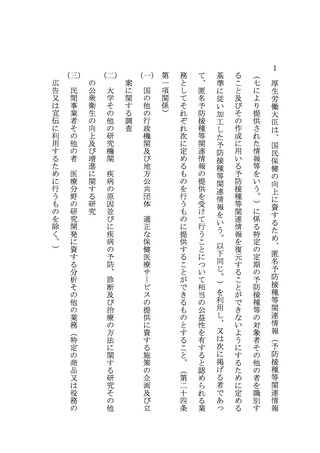 1　厚生労働大臣は、国民保健の向上に資するため、匿名予防接種等関連情報（予防接種等関連情報
（七により提供された情報等をいう。）に係る特定の定期の予防接種等の対象者その他の者を識別す
ること及びその作成に用いる予防接種等関連情報を復元することができないようにするために定める
基準に従い加工した予防接種等関連情報をいう。以下同じ。）を利用し、又は次に掲げる者であっ
て、匿名予防接種等関連情報の提供を受けて行うことについて相当の公益性を有すると認められる業
務としてそれぞれ次に定めるものを行うものに提供することができるものとすること。（第二十四条
第一項関係）
（一）　国の他の行政機関及び地方公共団体　適正な保健医療サービスの提供に資する施策の企画及び立
案に関する調査
（二）　大学その他の研究機関　疾病の原因並びに疾病の予防、診断及び治療の方法に関する研究その他
の公衆衛生の向上及び増進に関する研究
（三）　民間事業者その他の者　医療分野の研究開発に資する分析その他の業務（特定の商品又は役務の
広告又は宣伝に利用するために行うものを除く。）